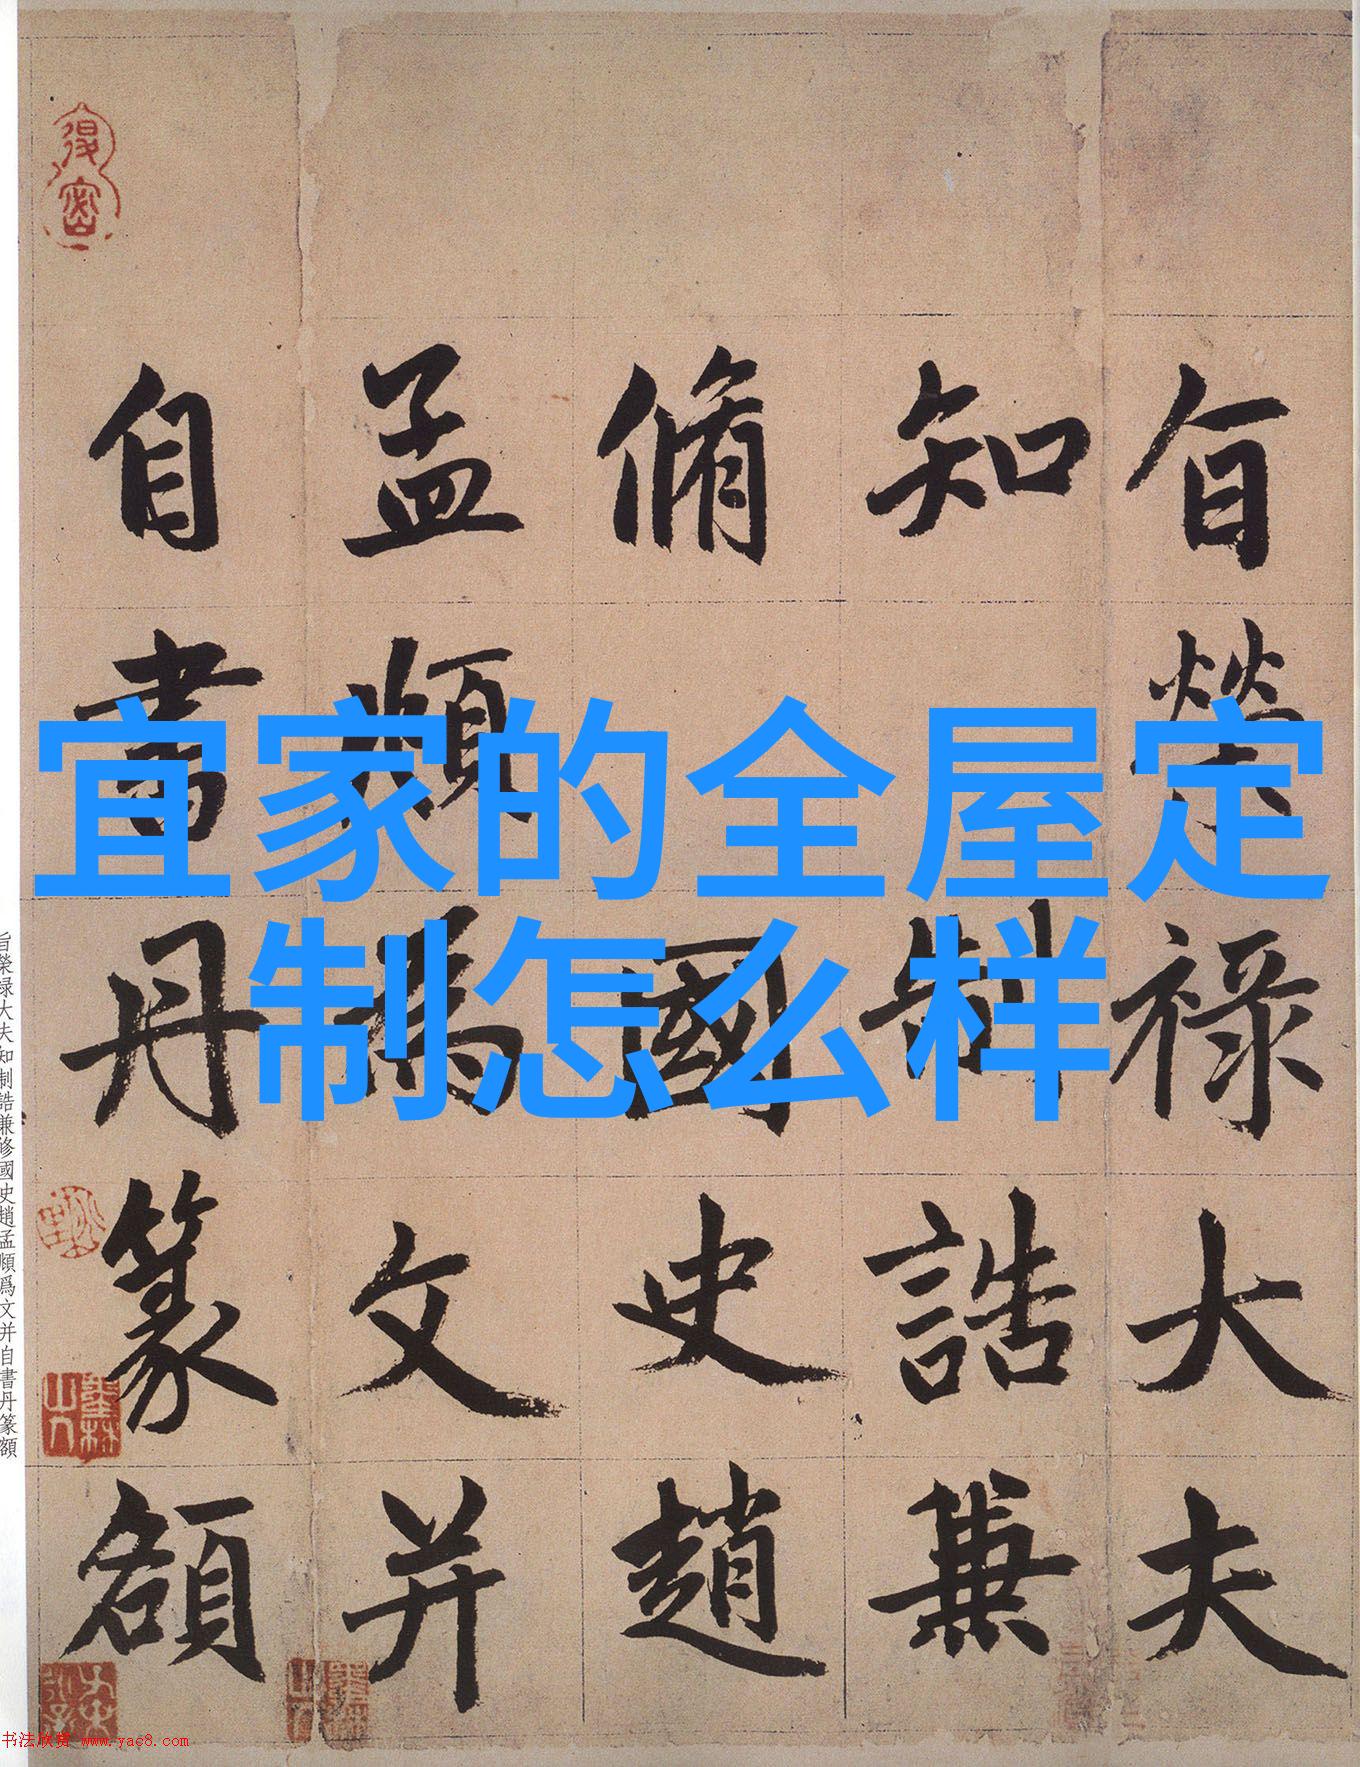 宜家的全屋定
制怎么样
旨榮祿大夫
知制誥兼
脩國史趙
孟頫爲文并
自書丹篆額
旨榮禄大夫知制誥兼修國史趙孟頫爲文并自書丹篆額
书法欣赏 www.yac8.com